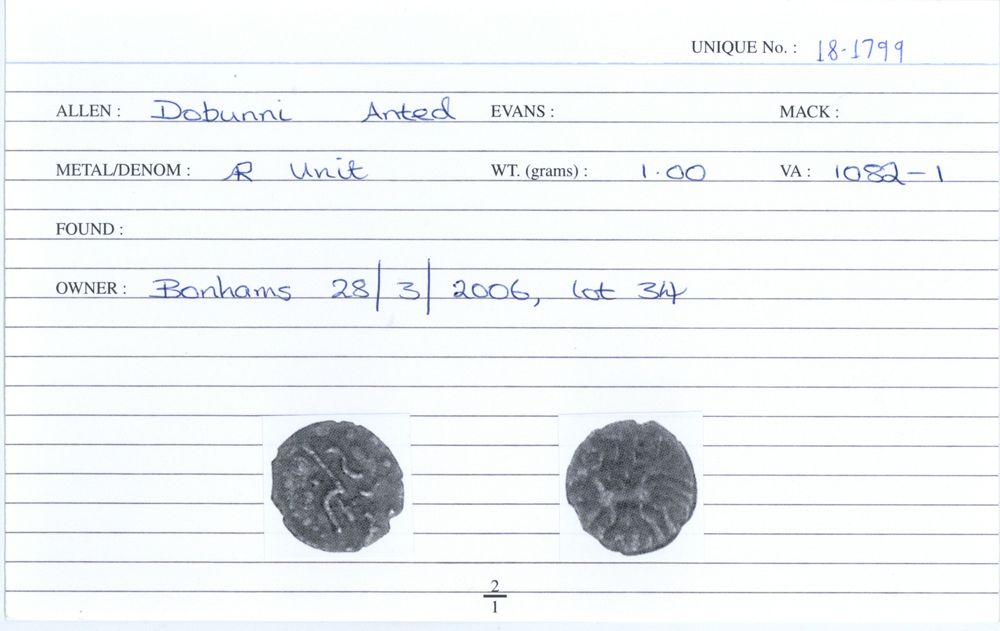 UNIQUE No. : 18-1799
ALLEN : Dobunni Anted EVANS : MACK :
METAL/DENOM : AR Unit WT. (grams) : 1.00 VA : 1082-1
FOUND :
OWNER : Bonhams 28/3/2006, lot 34
2
1